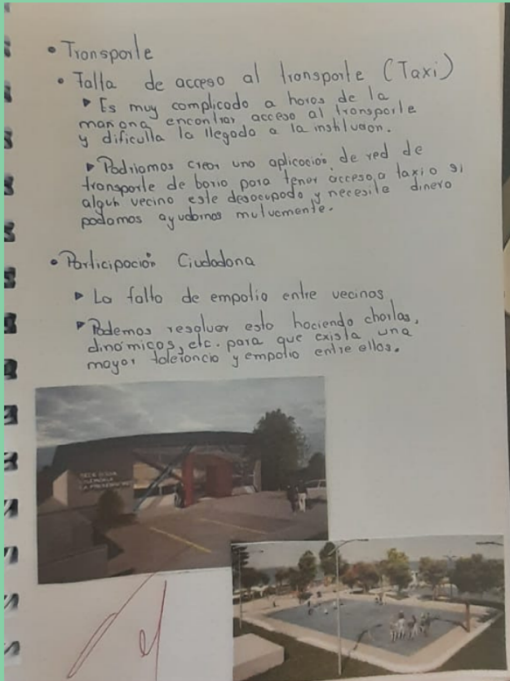 • Transporte
• Falla de acceso al transporte (Taxi)
▶ Es muy complicado a horas de la
mañana encontrar acceso al transporte
y dificulta la llegada a la institución.
▶ Podriamos crear una aplicación de red de
transporte de barrio para tener acceso a taxi o si
algun vecino este desocupado y necesita dinero
podamos ayudarnos mutuamente.
• Participación Ciudadana
▶ La falta de empatia entre vecinos
▶ Podemos resolver esto haciendo charlas,
dinámicas, etc. para que exista una
mayor tolerancia y empatia entre ellos.
SEDE SOCIAL